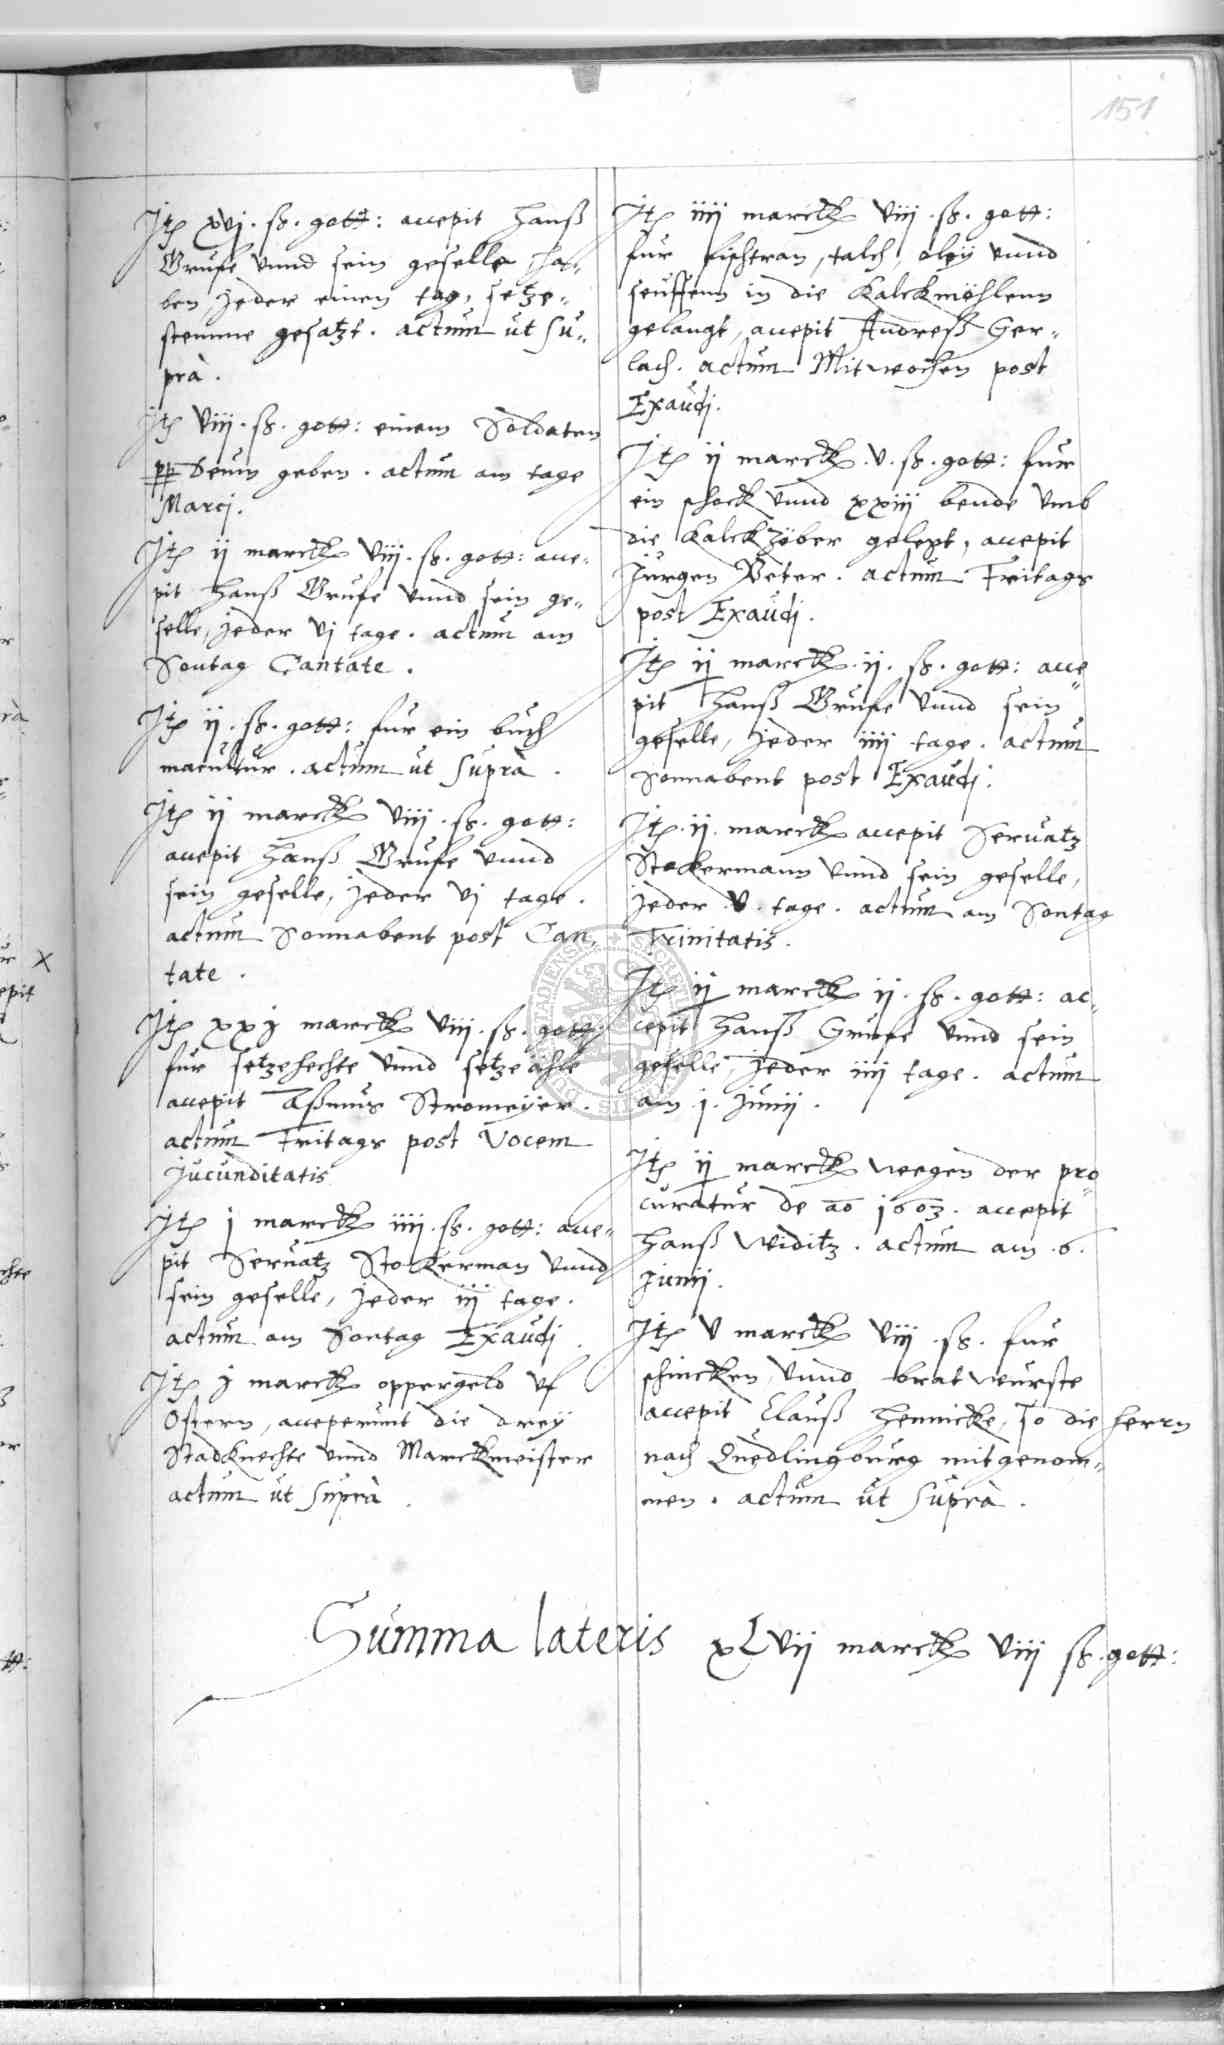 151
Itē xvj. ſß. gott: accepit Hanß
Grufe vnnd sein geselle ha-
ben jeder einen tag, setze-
stemme gesatzt. actum ut su-
prà.
Itē viij. ſß. gott: einem Soldaten
pp Deum geben. actum am tage
Marcj.
Itē ij marckē viij. ſß. gott: acce-
pit Hanß Grufe vnnd sein ge-
selle, jeder vj tage. actum am
Sontag Cantate.
Itē ij. ſß. gott: fur ein buch
macultur. actum ut suprà.
Itē ij marckē viij. ſß. gott:
accepit Hanß Grufe vnnd
sein geselle, jeder vj tage.
actum Sonnabent post Can-
tate.
Itē xxj marckē viij. ſß. gott:
fur setzehechte vnnd setze ähle
accepit Aßmus Stromeyer.
actum Fritags post Vocem
Jucunditatis
Itē j marckē iiij. ſß. gott: acce-
pit Servatz Stockerman vnnd
sein geselle, jeder iij tage.
actum am Sontag Exaudj.
Itē j marckē oppergeld vf
Ostern, acceperunt die drey
Stadknechte vnnd Marckmeister
actum ut suprà.
Itē iiij marckē viij. ſß. gott:
fur fischtran, talch, oley vnnd
seuffenn in die Kalckmöhlenn
gelangt, accepit Andreß Ger-
lach. actum Mitwochen post
Exaudj.
Itē ij marckē. v. ſß. gott: fur
ein schock vnnd xxiij bende vmb
die Kalckzöber gelegt, accepit
Jurgen Peter. actum Fritags
post Exaudj.
Itē ij marckē. ij. ſß. gott: acce-
pit Hanß Grufe vnnd sein
geselle, jeder iiij tage. actum
Sonnabent post Exaudj.
Itē. ij. marckē accepit Servatz
Stockermann vnnd sein geselle,
jeder. v. tage. actum am Sontag
Trinitatis.
Itē ij marckē ij. ſß. gott: ac-
cepit Hanß Grufe vnnd sein
geselle, jeder iiij tage. actum
am. 1. Junij.
Itē ij marckē wegen der pro-
curatur de ao 1603. accepit
Hanß Widitz. actum am. 6.
Junij.
Itē v marckē viij. ſß. fur
schincken vnnd bratwurste
accepit Clauß Hennicke, so die herrn
nach Quedlingburg mitgenom-
men. actum ut suprà.
Summa lateris xLvij marckē viij ſß. gott: